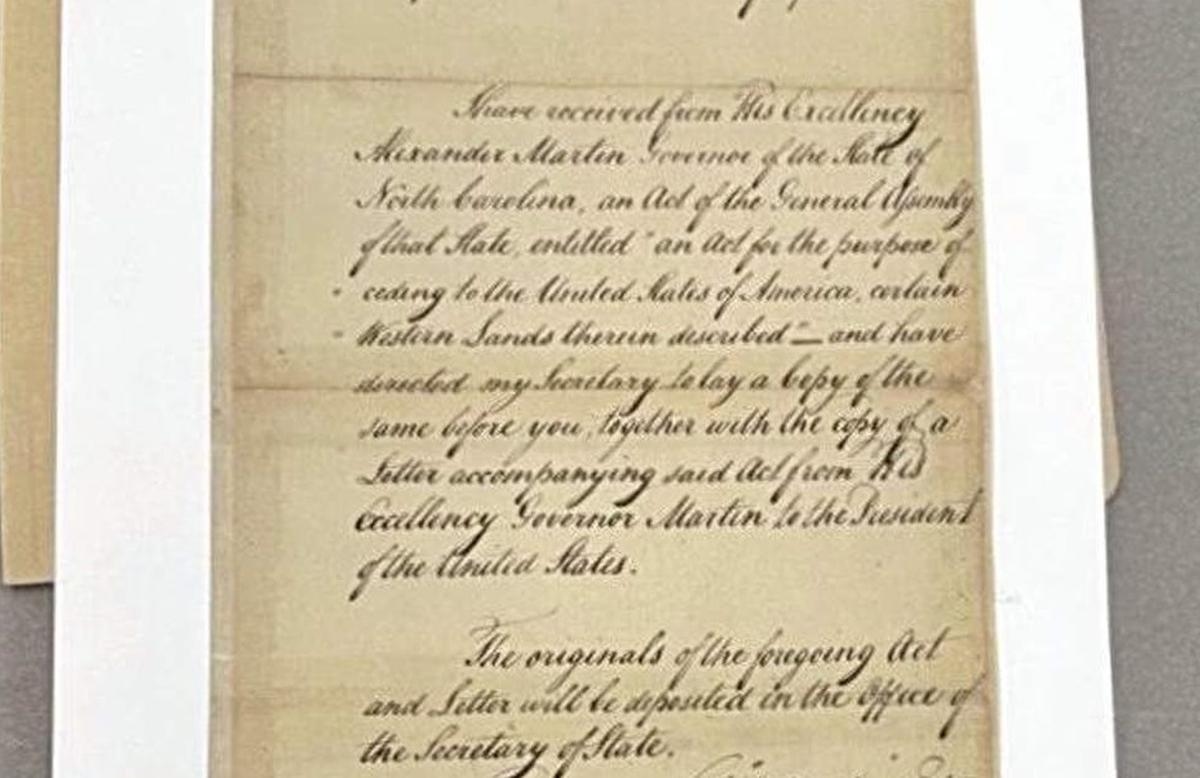 I have received from His Excellency
Alexander Martin Governor of the State of
North Carolina, an Act of the General Assembly
of that State, entitled "an Act for the purpose of
" ceding to the United States of America, certain
" Western Lands therein described" — and have
directed my Secretary to lay a Copy of the
same before you, together with the copy of a
Letter accompanying said Act from His
Excellency Governor Martin to the President
of the United States.
The originals of the foregoing Act
and Letter will be deposited in the Office of
the Secretary of State.